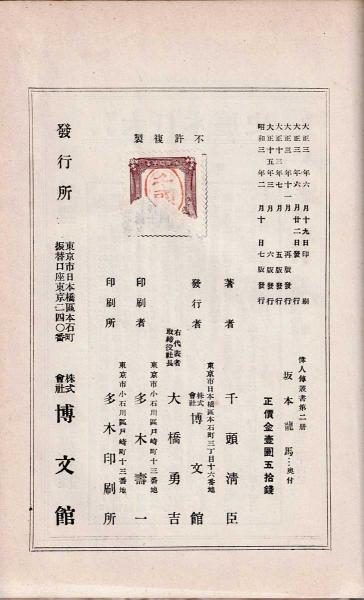 大正三年六月十九日印刷
大正三年六月廿二日發行
大正三年十一月再版發行
大正十三年七月五版發行
大正十五年三月六版發行
昭和三年二月十日七版發行
不許複製
偉人傳叢書第二册
坂本龍馬…奥付
正價金壹圓五拾錢
著者 千頭淸臣
東京市日本橋區本石町三丁目十六番地
發行者 株式會社 博文館
右代表者取締役社長 大橋勇吉
東京市小石川區戸崎町十三番地
印刷者 多木壽一
東京市小石川區戸崎町十三番地
印刷所 多木印刷所
發行所
東京市日本橋區本石町
振替口座東京二四〇番
株式會社 博文館